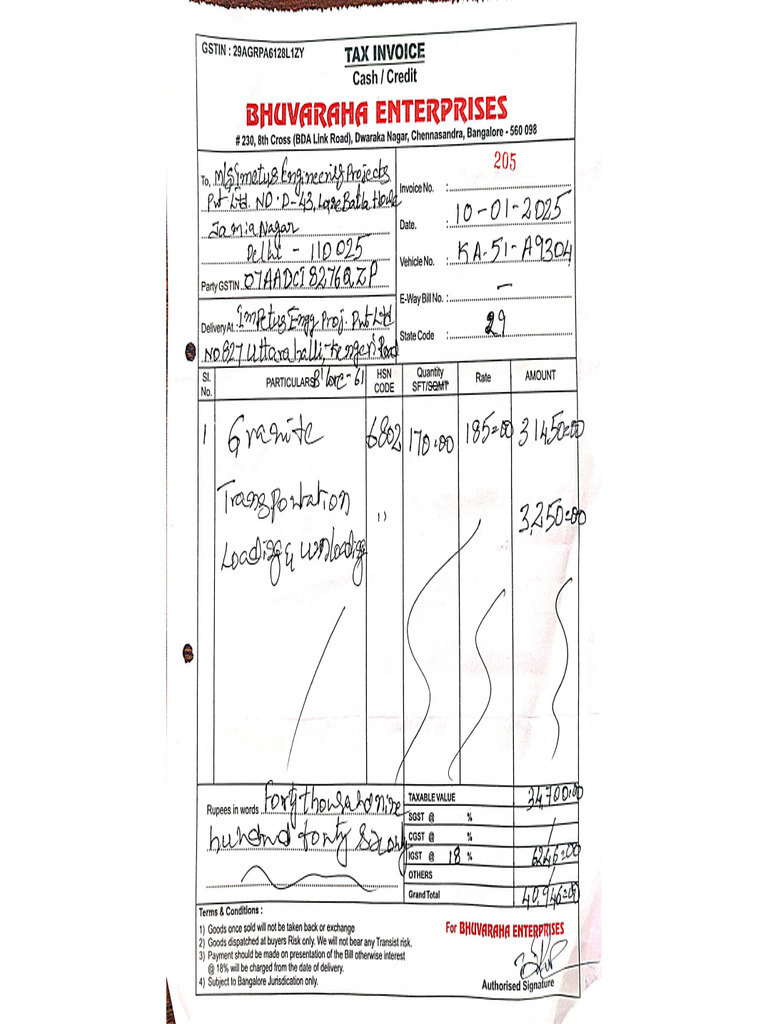 GSTIN : 29AGRPA6128L1ZY
TAX INVOICE
Cash / Credit
BHUVARAHA ENTERPRISES
# 230, 8th Cross (BDA Link Road), Dwaraka Nagar, Chennasandra, Bangalore - 560 098
To, M/s Imetus Engineering Projects
Pvt Ltd. NO. D-43, Batla House
Jamia Nagar
Delhi - 110025
Party GSTIN 07AADCI8276QZP
Delivery At : Impetus Engg Proj. Pvt Ltd
NO 827 Uttarahalli, Kengeri Road
Invoice No. : 205
Date. : 10-01-2025
Vehicle No. : KA-51-A9304
E-Way Bill No. : -
State Code : 29
Sl. No. PARTICULARS B'lore-61 HSN CODE Quantity SFT/SQMT Rate AMOUNT
1 Granite 6802 170.00 185=00 31450=00
Transportation " 3,250=00
Loading & unloading
Rupees in words forty thousand nine
hundred forty
TAXABLE VALUE 34,700.00
SGST @ %
CGST @ %
IGST @ 18 % 6246=00
OTHERS
Grand Total 40,946=00
Terms & Conditions :
1) Goods once sold will not be taken back or exchange
2) Goods dispatched at buyers Risk only. We will not bear any Transist risk.
3) Payment should be made on presentation of the Bill otherwise interest
@ 18% will be charged from the date of delivery.
4) Subject to Bangalore Jurisdication only.
For BHUVARAHA ENTERPRISES
Authorised Signature